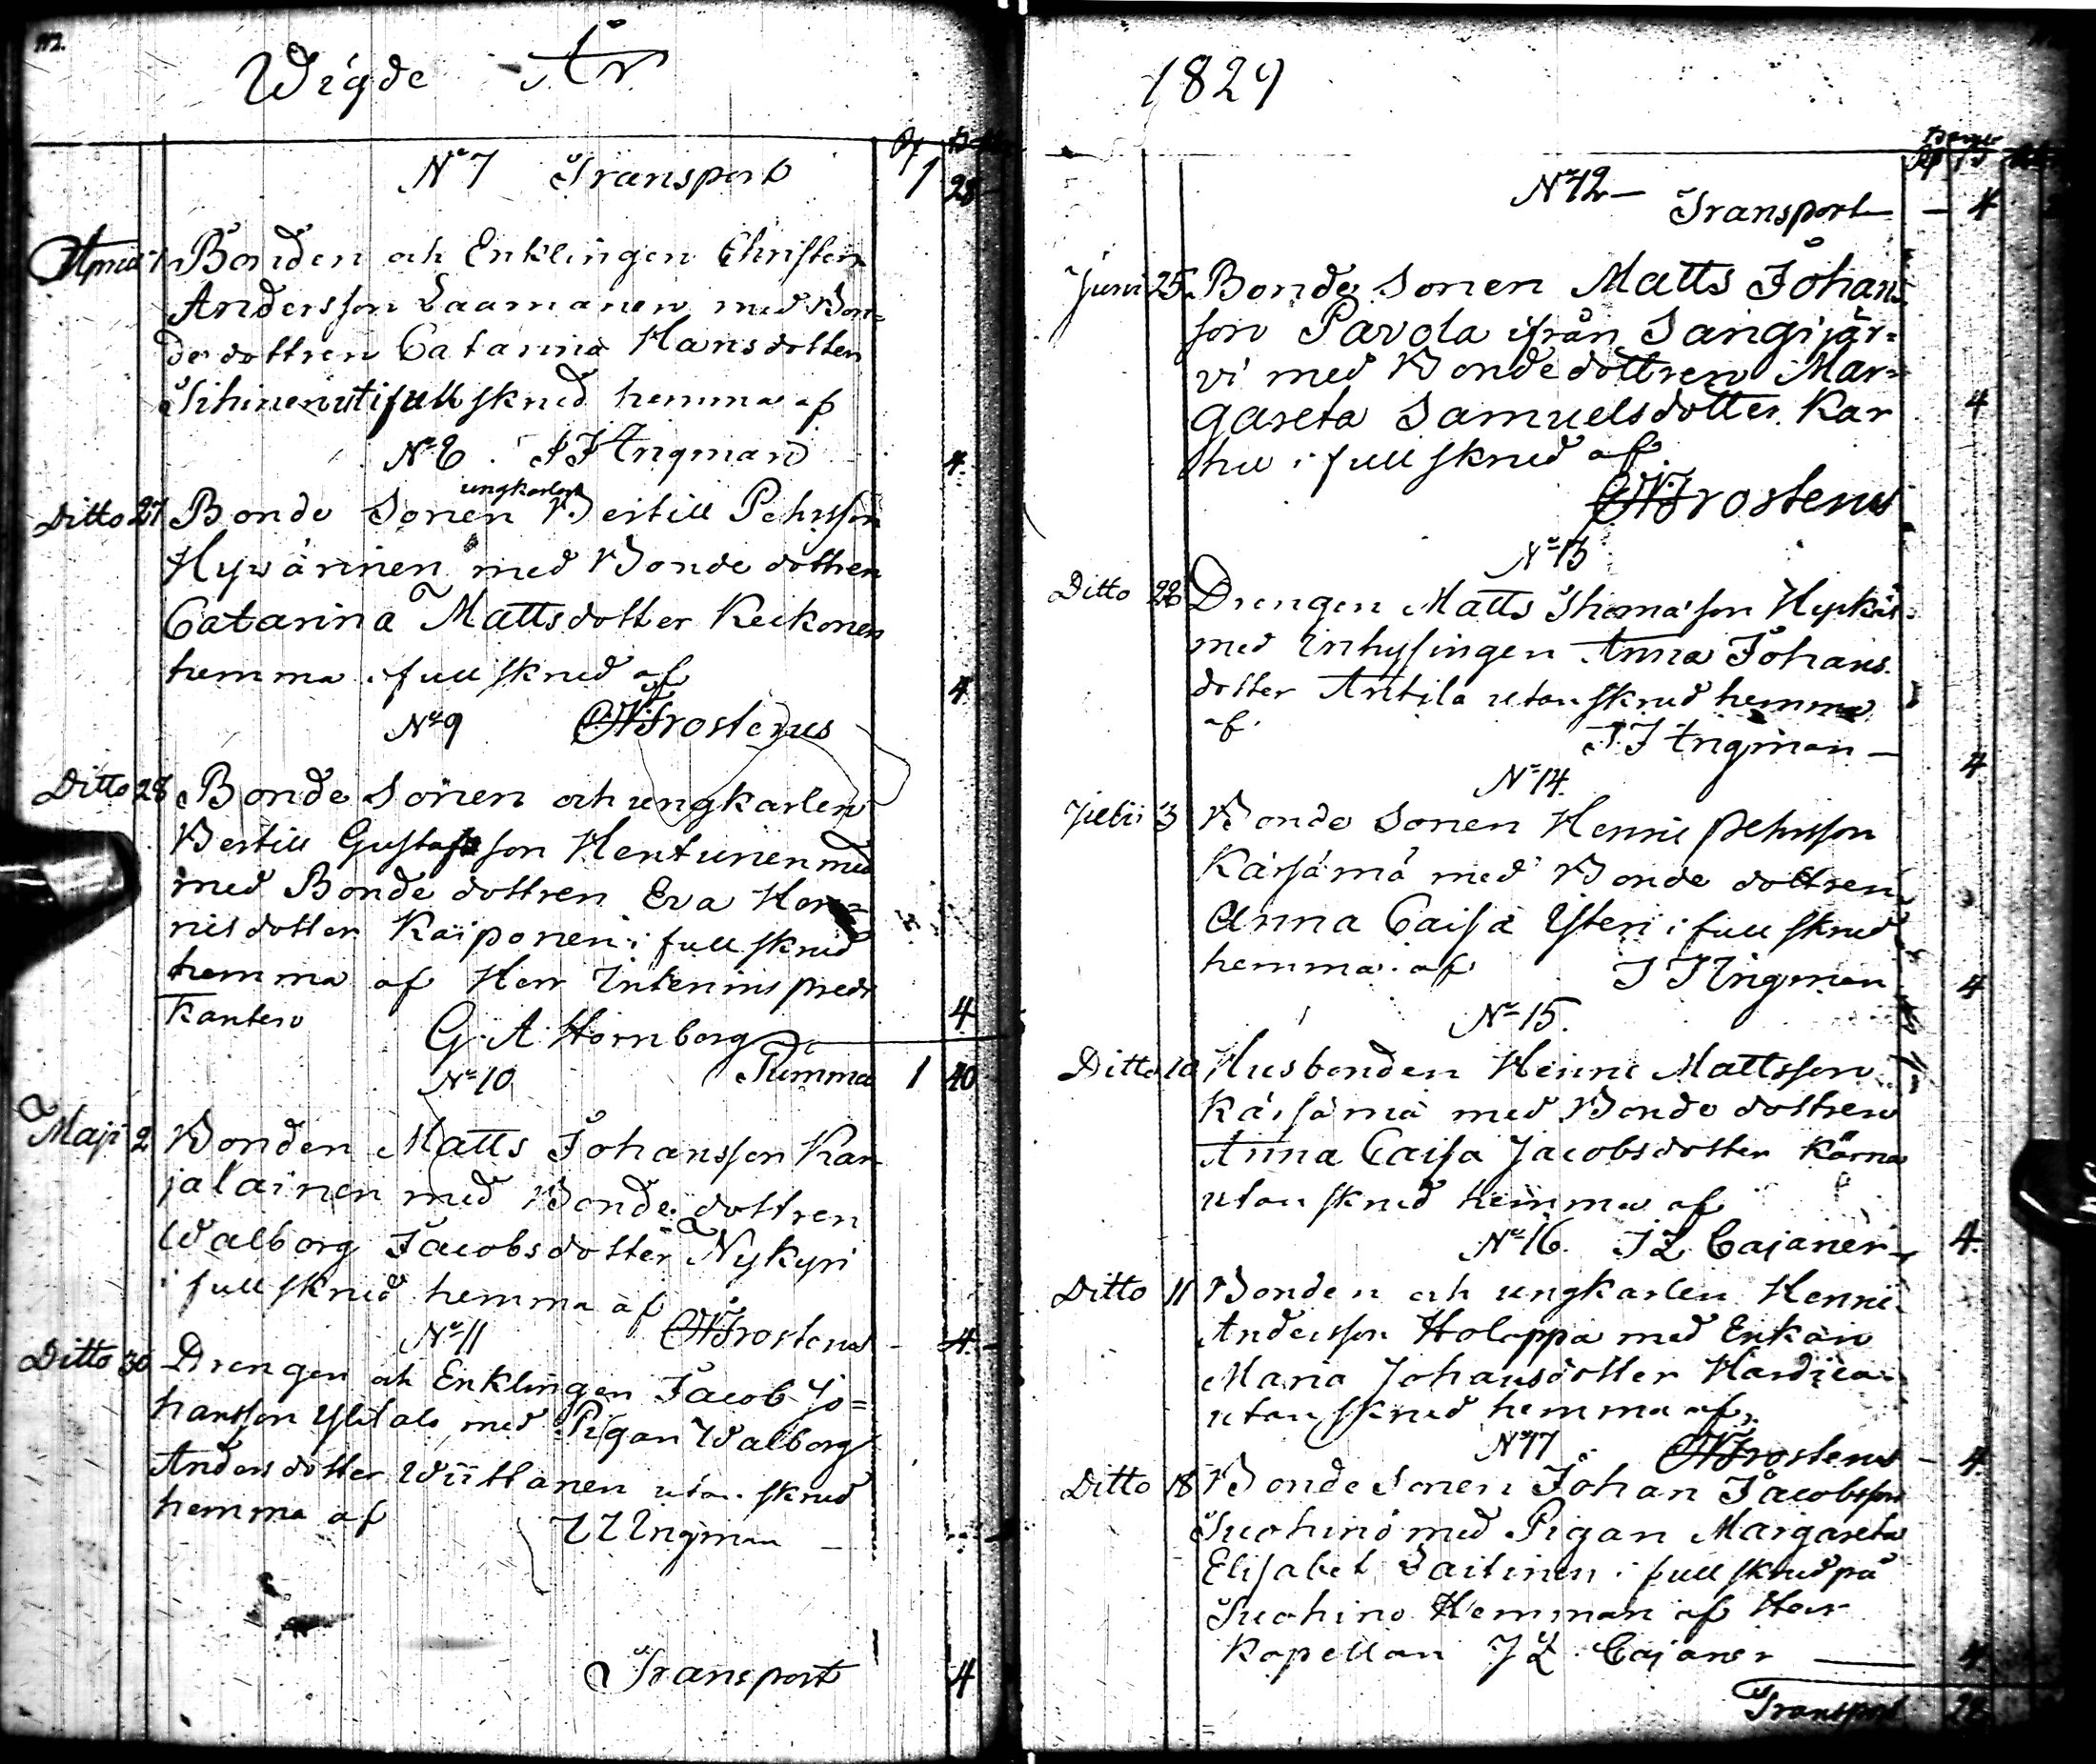 Wigde År
N° 7 Transport 1 28
Aprill 1 Bonden och Enklingen Christer
Andersson Laamanen med Bon=
de dottren Catarina Hansdotter
i full skrud hemma af
N° 8 Ingman 4.
ungkarlen
Ditto 27 Bonde Sonen Bertill Pehrsson
Hywärinen med Bonde dottren
Catarina Mattsdotter Keckonen
hemma i full skrud af 4
N° 9 Frosterus
Ditto 28 Bonde Sonen och ungkarlen
Bertill Gustafsson Hentunen med
med Bonde dottren Eva Hen=
nisdotter Kaiponen i full skrud
hemma af Herr Interims predi
kanten 4
G. A. Hornborg
N° 10 Summa 1 40
Maji 2 Bonden Matts Johansson Kar
jalainen med Bonde dottren
Walborg Jacobsdotter Nykyri
i full skrud hemma af
N° 11 Frosterus 4.
Ditto 30 Drengen och Enklingen Jacob Jo=
hansson Ylitalo med Pigan Walborg
Andersdotter Wiitanen utan skrud
hemma af
Ingman
Transport 4
1829
N° 12 Transport 4
Junii 25 Bonde Sonen Matts Johans
son Pavola ifrån Sangijär=
vi med Bonde dottren Mar=
gareta Samuelsdotter Kar 4
hu i full skrud af
Frosterus
N° 13
Ditto 28 Drengen Matts Thomasson
med Inhysingen Anna Johans
dotter Antila utan skrud hemma
af
Ingman 4
N° 14.
Julii 3 Bonde Sonen Henric Pehrsson
Kärsämä med Bonde dottren
Anna Caisa i full skrud
hemma af Ingman 4
N° 15.
Ditto 10 Husbonden Henric Mattsson
Kärsämä med Bonde dottren
Anna Caisa Jacobsdotter Kärnä
utan skrud hemma af
N° 16. J L Cajaner 4.
Ditto 11 Bonden och ungkarlen Henric
Andersson Holappa med Enkan
Maria Johansdotter
utan skrud hemma af
N° 17 Frosterus 4.
Ditto 18 Bonde Sonen Johan Jacobsson
Suohino med Pigan Margareta
Elisabet Laitinen i full skrud på
Suohino Hemman af Herr
Kapellan J L Cajaner 4
Transport